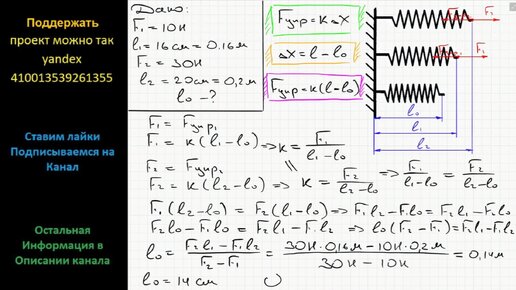 Поддержать
проект можно так
yandex
410013539261355
Ставим лайки
Подписываемся на
Канал
Остальная
Информация в
Описании канала
Дано:
F₁ = 10Н
l₁ = 16см = 0.16м
F₂ = 30Н
l₂ = 20см = 0,2м
l₀ - ?
Fупр = кΔX
ΔX = l - l₀
Fупр = к(l - l₀)
F₁
F₁
l₀
l₁
l₂
F₁ = Fупр₁
F₁ = к(l₁ - l₀) => к = F₁/(l₁ - l₀)
F₂ = Fупр₂
F₂ = к(l₂ - l₀) => к = F₂/(l₂ - l₀) => F₁/(l₁ - l₀) = F₂/(l₂ - l₀)
F₁(l₂ - l₀) = F₂(l₁ - l₀) => F₁l₂ - F₁l₀ = F₂l₁ - F₂l₀
F₂l₀ - F₁l₀ = F₂l₁ - F₁l₂ => l₀(F₂ - F₁) = F₂l₁ - F₁l₂
l₀ = (F₂l₁ - F₁l₂)/(F₂ - F₁) = (30Н · 0,16м - 10Н · 0,2м)/(30Н - 10Н) = 0,14м
l₀ = 14см